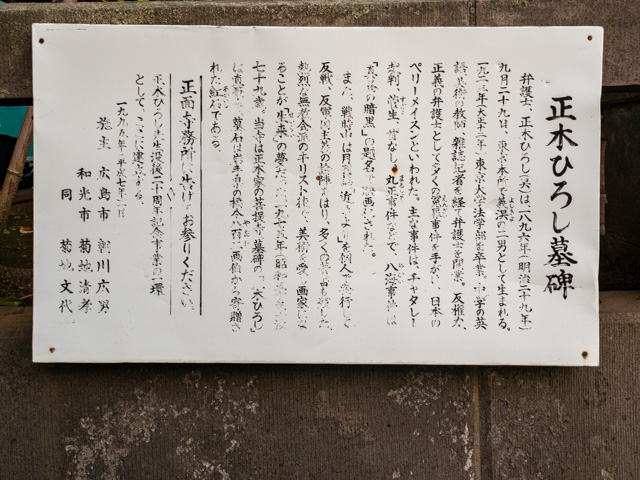 正木ひろし墓碑
弁護士、正木ひろし は、一八九六年(明治二十九年)
九月二十九日、東京本所で 二男として生まれる。
一九二三年(大正十二年)東京大学法学部を卒業、中学の英
語、美術の教師、雑誌記者を経て弁護士を開業。反権力、
正義の弁護士として多くの冤罪事件を手がけ、日本の
ペリーメイスンといわれた。主な事件は、チャタレー
裁判、菅生、首なし、丸正事件などで、八海事件は
「真昼の暗黒」の題名で映画化された。
また、戦時中は月刊誌「近きより」を個人で発行して
反戦、反軍国主義の論陣をはり、多くの
熱烈な無教会派のキリスト
ることが生来の夢だった。一九七五年(昭和
七十九歳。当寺は正木家の菩提寺、墓碑の「正木ひろし」
は 墓石は岩手県の 画伯から寄贈さ
れた紅石である。
正面寺務所へ告げてお参りください。
正木ひろし先生没後二十周年記念事業の一環
として、ここに建立する。
一九九五年(平成七年)一月
施主 広島市 朝川広男
和光市 菊地清孝
同 菊地文代